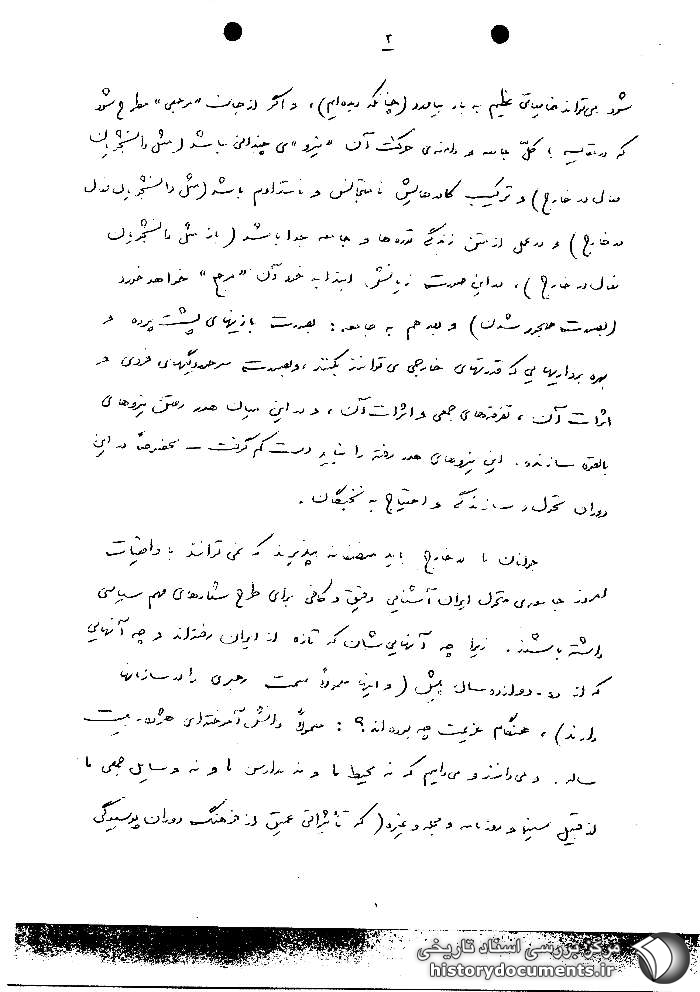 ۲
شود می‌تواند خدمات عظیم به بار بیاورد (چنانکه دیده‌ایم)، و اگر از جانب "مرجعی" مطرح شود
که در مقایسه با کلّ جامعه و دامنه‌ی حرکت آن "نیرو"ی چندانی نباشد (مثل دانشجویان
فعال در خارج) و ترکیب کادرهایش نامتجانس و نامتداوم باشد (مثل دانشجویان فعال
در خارج) و در عمل از متن زندگی توده‌ها و جامعه جدا باشد (باز مثل دانشجویان
فعال در خارج)، در این صورت زیانش ابتدا به خود آن "مرجع" خواهد خورد
(بصورت مهجور شدن) و بعد هم به جامعه: بصورت بازیهای پشت پرده و
بهره برداریهایی که قدرتهای خارجی می‌توانند بکنند، و بصورت سرخوردگیهای فردی و
اثرات آن، تفرقه‌های جمعی و اثرات آن، و در این میان هدر رفتن نیروهای
بالقوه سازنده. این نیروهای هدر رفته را نباید دست کم گرفت – مخصوصاً در این
دوران تحول و سازندگی و احتیاج به نخبگان.
جوانان ما در خارج باید منصفانه بپذیرند که نمی‌توانند با واقعیات
امروز جامعه‌ی متحول ایران آشنایی دقیق و کافی برای طرح شعارهای مهم سیاسی
داشته باشند. زیرا چه آنهایی‌شان که تازه از ایران رفته‌اند و چه آنهایی
که از ده - دوازده سال پیش (و اینها معمولاً سمت رهبری را در سازمانها
دارند)، هنگام عزیمت چه بوده‌اند؟: معمولاً دانش‌آموخته‌ای هژده - بیست
ساله. و می‌دانند و می‌دانیم که نه محیط ما و نه مدارس ما و نه وسایل جمعی ما
از قبیل سینما و روزنامه و مجله و غیره (که تأثراتی عمیق از فرهنگ دوران پوسیدگی
مرکز بررسی اسناد تاریخی
historydocuments.ir